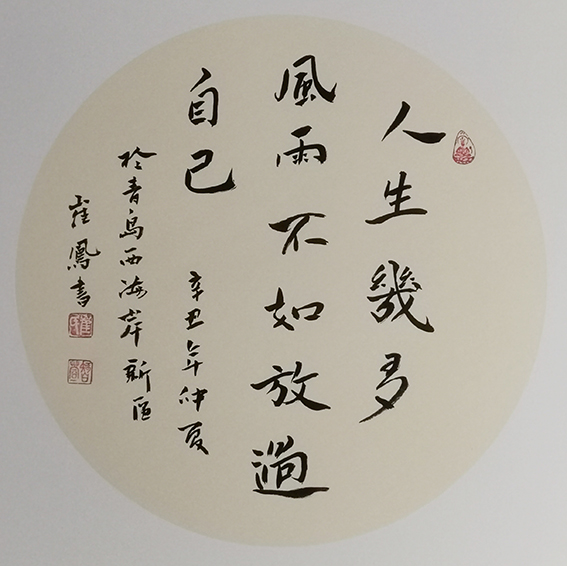 人生幾多
風雨不如放過
自己
辛丑年仲夏
於青島西海岸新區
崔鳳書